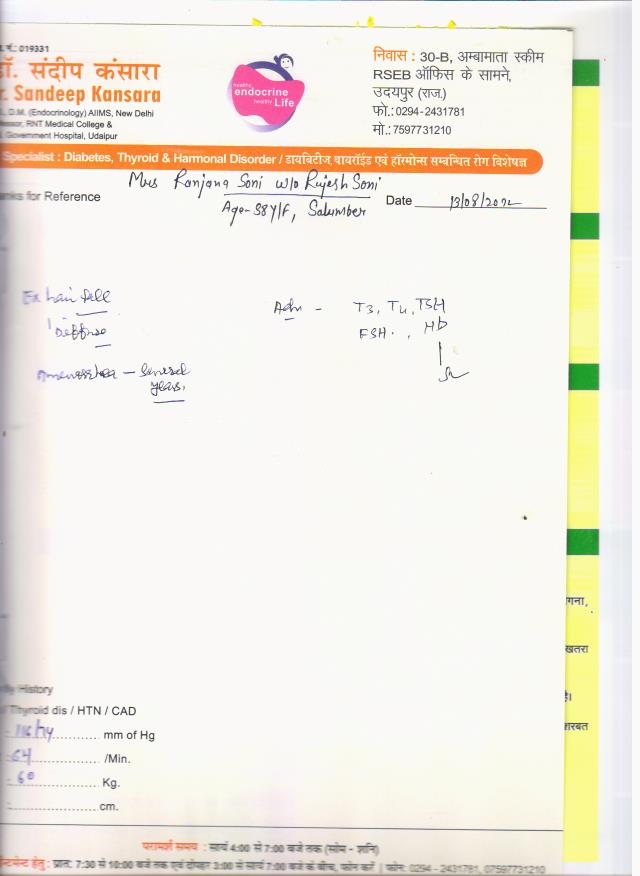 नं.: 019331
डॉ. संदीप कंसारा
Dr. Sandeep Kansara
D.M. (Endocrinology) AIIMS, New Delhi
Professor, RNT Medical College &
Government Hospital, Udaipur
healthy
endocrine
healthy Life
निवास : 30-B, अम्बामाता स्कीम
RSEB ऑफिस के सामने,
उदयपुर (राज.)
फो.: 0294-2431781
मो.: 7597731210
Specialist : Diabetes, Thyroid & Harmonal Disorder / डायबिटीज, थायरॉईड एवं हॉरमोन्स सम्बन्धित रोग विशेषज्ञ
Mrs Ranjana Soni w/o Rajesh Soni
Thanks for Reference
Date 13/08/2012
Age-38Y/F, Salumber
hair fall
Diffuse
Adv - T3, T4, TSH
FSH. , Hb
Amenorrhea - Several
years.
गना,
खतरा
है।
शरबत
History
Thyroid dis / HTN / CAD
116/74 mm of Hg
64 /Min.
60 Kg.
cm.
परामर्श समय : सायं 4:00 से 7:00 बजे तक (सोम - शनि)
हेतु : प्रात: 7:30 से 10:00 बजे तक एवं दोपहर 3:00 से सायं 7:00 बजे के बीच, फोन करें | फोन: 0294 - 2431781, 07597731210